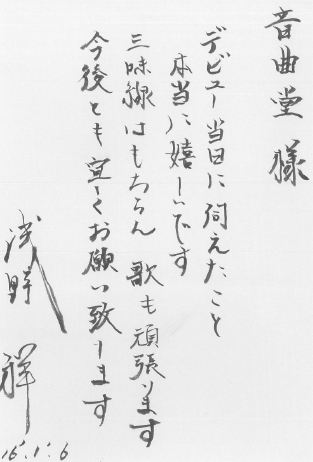 音曲堂 様
デビュー当日に伺えたこと
本当に嬉しいです
三味線はもちろん 歌も頑張ります
今後とも宜しくお願い致します
浅野 祥
'16.1.6